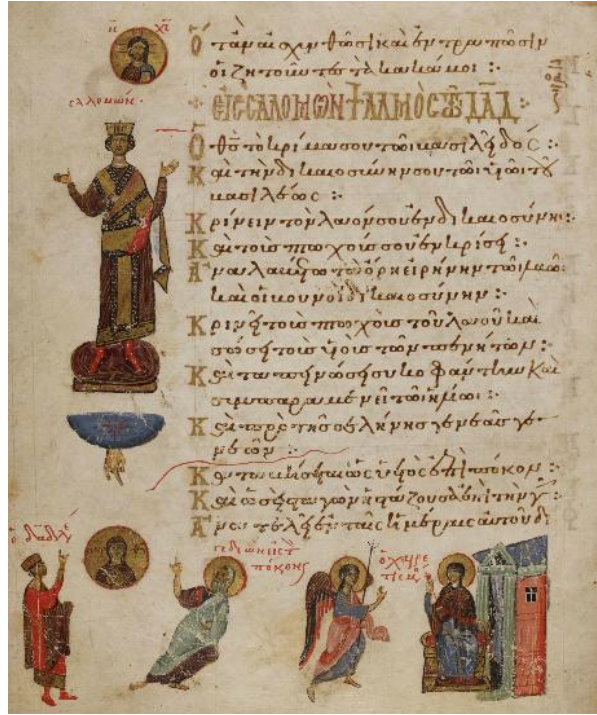 ι͞ς χ͞ς
Ὅταν αἰσχυνθῶσι καὶ ἐντραπῶσιν
οἱ ζητοῦντες τὰ κακά μοι :·
σαλομών·
ΕΙΣ ΣΑΛΟΜΩΝ ΨΑΛΜΟΣ ΤΩ ΔΑΔ
Ὁ θ͞ς τὸ κρίμα σου τῶι βασιλεῖ δός :·
Καὶ τὴν δικαιοσύνην σου τῶι υἱῶι τοῦ
βασιλέως :·
Κρίνειν τὸν λαόν σου ἐν δικαιοσύνηι :·
Καὶ τοὺς πτωχούς σου ἐν κρίσει :·
Ἀναλαβέτω τὰ ὄρη εἰρήνην τῶι λαῶι :
καὶ οἱ βουνοὶ δικαιοσύνην :·
Κρινεῖ τοὺς πτωχοὺς τοῦ λαοῦ καὶ
σώσει τοὺς υἱοὺς τῶν πενήτων :·
Καὶ ταπεινώσει συκοφάντην Καὶ
συμπαραμενεῖ τῶι ἡλίωι :·
Καὶ πρὸ τῆς σελήνης γενεὰς γε
νεῶν :·
Καταβήσεται ὡς ὑετὸς ἐπὶ πόκον :·
Καὶ ὡσεὶ σταγὼν ἡ στάζουσα ἐπὶ τὴν γ
Ἀνατελεῖ ἐν ταῖς ἡμέραις αὐτοῦ δι
ὁ χαιρε
τισμός